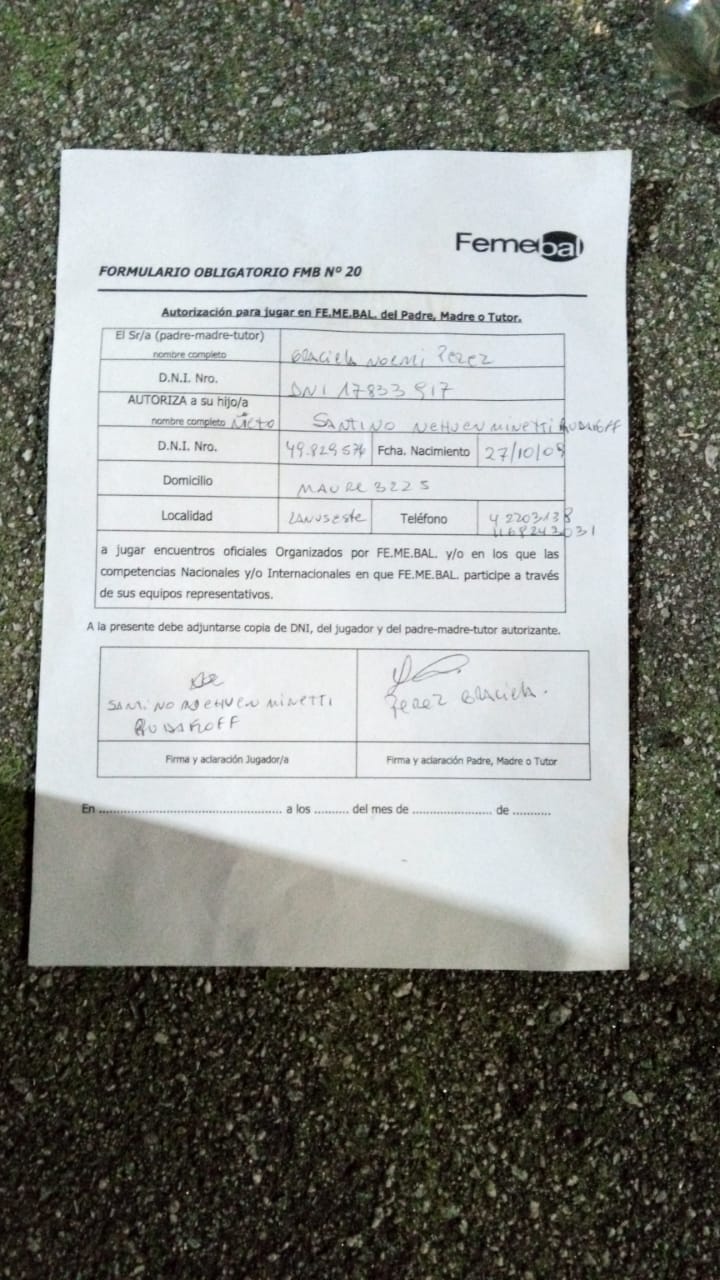 Femebal
FORMULARIO OBLIGATORIO FMB Nº 20
Autorización para jugar en FE.ME.BAL. del Padre, Madre o Tutor.
El Sr/a (padre-madre-tutor)
nombre completo GRACIELA NOEMI PEREZ
D.N.I. Nro. DNI 17833917
AUTORIZA a su hijo/a
nombre completo NIETO SANTINO NEHUEN MINETTI RUDAKOFF
D.N.I. Nro. 49.829.576 Fcha. Nacimiento 27/10/09
Domicilio MAURE 3225
Localidad LANUS ESTE Teléfono 42203138
a jugar encuentros oficiales Organizados por FE.ME.BAL. y/o en los que las
competencias Nacionales y/o Internacionales en que FE.ME.BAL. participe a través
de sus equipos representativos.
A la presente debe adjuntarse copia de DNI, del jugador y del padre-madre-tutor autorizante.
SANTINO NEHUEN MINETTI
RUDAKOFF
PEREZ GRACIELA.
Firma y aclaración Jugador/a Firma y aclaración Padre, Madre o Tutor
En ................................................ a los ......... del mes de ..................... de ..........